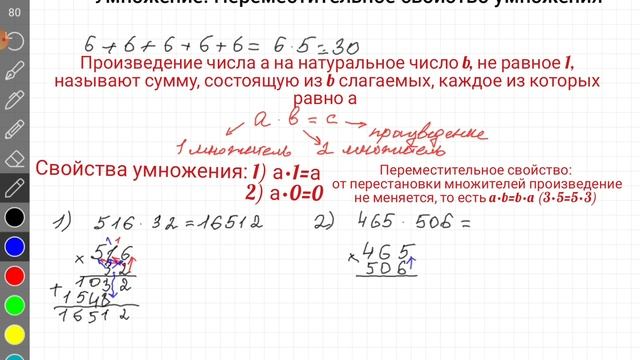 80
Умножение. Переместительное свойство умножения
6+6+6+6+6= 6·5=30
Произведение числа а на натуральное число b, не равное 1,
называют сумму, состоящую из b слагаемых, каждое из которых
равно а
a · b = c → произведение
1 множитель 2 множитель
Свойства умножения: 1) а·1=а
2) а·0=0
Переместительное свойство:
от перестановки множителей произведение
не меняется, то есть a·b=b·a (3·5=5·3)
1) 516 · 32 = 16512
× 516
32
+ 1032
1548
16512
2) 465 · 506 =
× 465
506